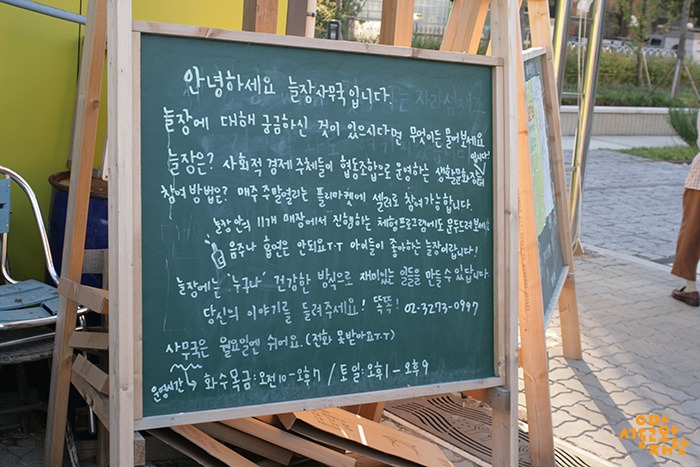 안녕하세요 늘장사무국입니다.
늘장에 대해 궁금하신 것이 있으시다면 무엇이든 물어보세요
늘장은? 사회적 경제 주체들이 협동조합으로 운영하는 생활문화장터 입니다!
참여 방법은? 매주 주말열리는 플리마켓에 셀러로 참여가능합니다.
늘장 안의 11개 매장에서 진행하는 체험프로그램에도 문두드려
음주나 흡연은 안되요T.T 아이들이 좋아하는 늘장이랍니다!
늘장에는 '누구나' 건강한 방식으로 재미있는 일들을 만들 수 있답니다
당신의 이야기를 들려주세요! 똑똑! 02-3273-0997
사무국은 월요일엔 쉬어요. (전화 못받아요T.T)
운영시간 화수목금: 오전10-오후7 / 토일: 오후1-오후9